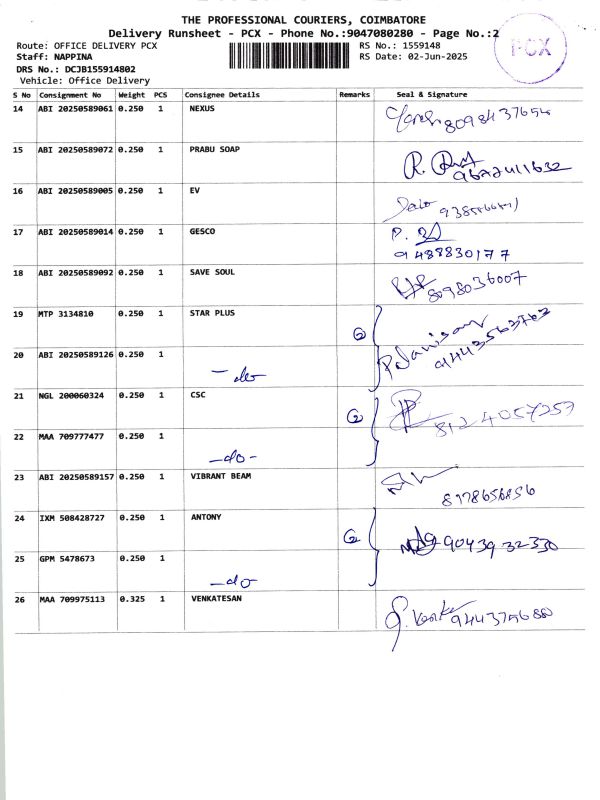 THE PROFESSIONAL COURIERS, COIMBATORE
Delivery Runsheet - PCX - Phone No.:9047080280 - Page No.:2
Route: OFFICE DELIVERY PCX
Staff: NAPPINA
DRS No.: DCJB155914802
Vehicle: Office Delivery
RS No.: 1559148
RS Date: 02-Jun-2025
PCX
S No Consignment No Weight PCS Consignee Details Remarks Seal & Signature
14 ABI 20250589061 0.250 1 NEXUS 8098437654
15 ABI 20250589072 0.250 1 PRABU SOAP
16 ABI 20250589005 0.250 1 EV
17 ABI 20250589014 0.250 1 GESCO
9488830177
18 ABI 20250589092 0.250 1 SAVE SOUL 8098036007
19 MTP 3134810 0.250 1 STAR PLUS 2
20 ABI 20250589126 0.250 1
-do-
21 NGL 200060324 0.250 1 CSC 2 8124057257
22 MAA 709777477 0.250 1
-do-
23 ABI 20250589157 0.250 1 VIBRANT BEAM
8178656856
24 IXM 508428727 0.250 1 ANTONY 2 9043932330
25 GPM 5478673 0.250 1
-do-
26 MAA 709975113 0.325 1 VENKATESAN